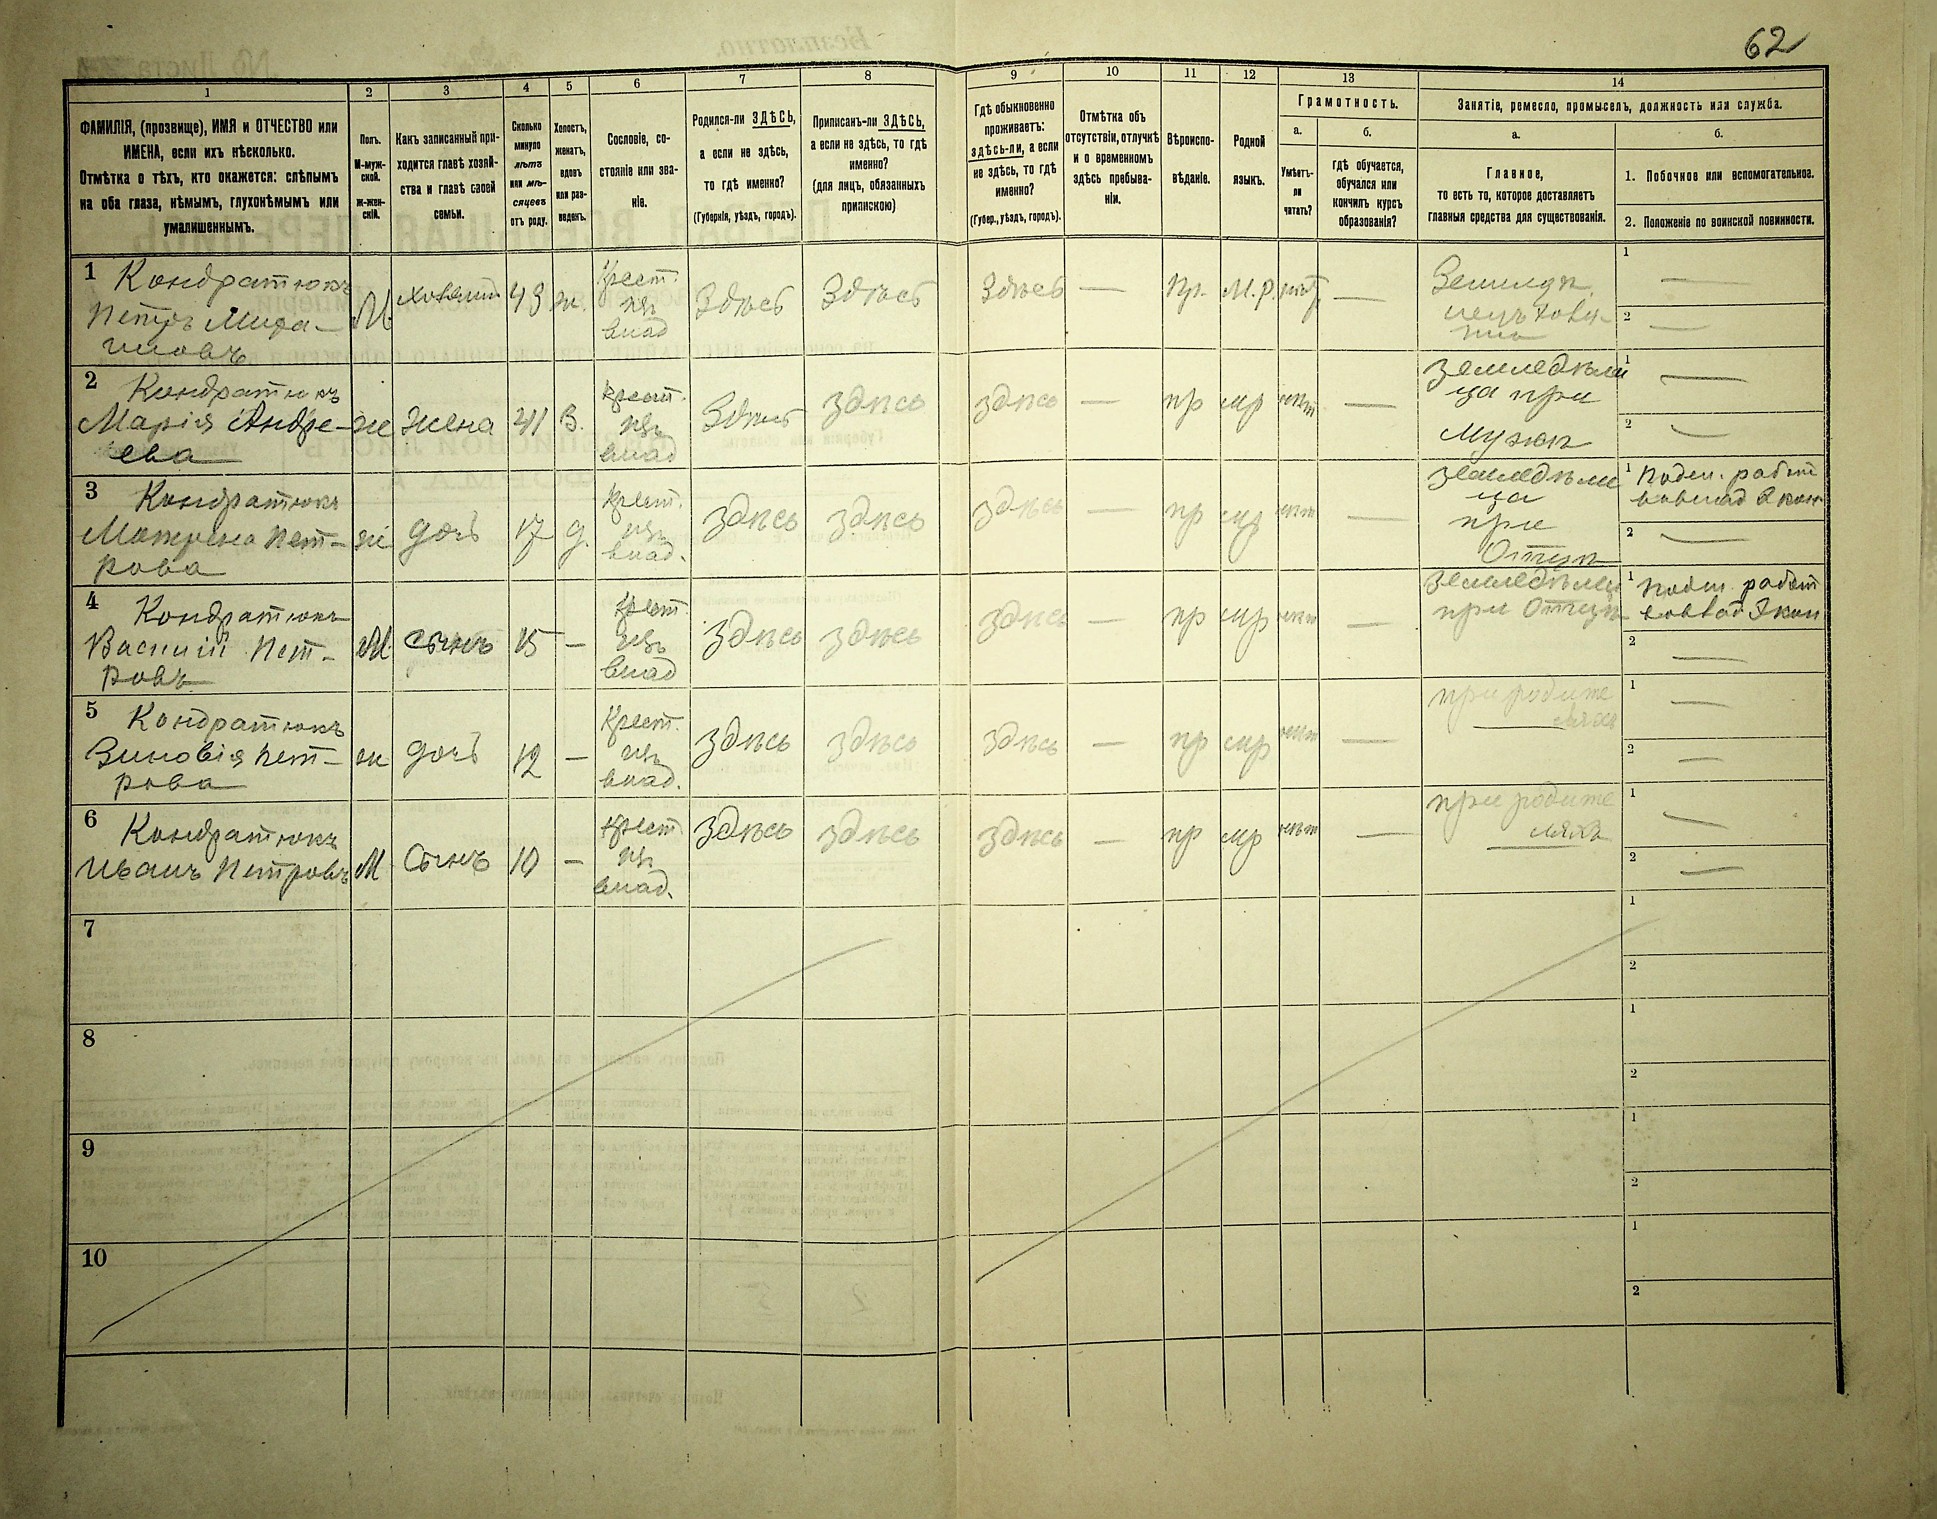 62
1
2
3
4
5
6
7
8
9
10
11
12
13
14
ФАМИЛІЯ, (прозвище), ИМЯ и ОТЧЕСТВО или
ИМЕНА, если ихъ нѣсколько.
Отмѣтка о тѣхъ, кто окажется: слѣпымъ
на оба глаза, нѣмымъ, глухонѣмымъ или
умалишеннымъ.
Полъ.
М-муж-
ской.
Ж-жен-
скій.
Какъ записанный при-
ходится главѣ хозяй-
ства и главѣ своей
семьи.
Сколько
минуло
лѣтъ
или мѣ-
сяцевъ
отъ роду.
Холостъ,
женатъ,
вдовъ
или раз-
веденъ.
Сословіе, со-
стояніе или зва-
ніе.
Родился-ли ЗДѢСЬ,
а если не здѣсь,
то гдѣ именно?
(Губернія, уѣздъ, городъ).
Приписанъ-ли ЗДѢСЬ,
а если не здѣсь, то гдѣ
именно?
(для лицъ, обязанныхъ
припискою)
Гдѣ обыкновенно
проживаетъ:
здѣсь-ли, а если
не здѣсь, то гдѣ
именно?
(Губер., уѣздъ, городъ).
Отмѣтка объ
отсутствіи, отлучкѣ
и о временномъ
здѣсь пребыва-
ніи.
Вѣроиспо-
вѣданіе.
Родной
языкъ.
Грамотность.
а.
б.
Умѣетъ-
ли
читать?
Гдѣ обучается,
обучался или
кончилъ курсъ
образованія?
Занятіе, ремесло, промыселъ, должность или служба.
а.
б.
Главное,
то есть то, которое доставляетъ
главныя средства для существованія.
1. Побочное или вспомогательное.
2. Положеніе по воинской повинности.
1 Кондратюкъ
Петръ
М
43
ж.
Крест.
влад
Здѣсь
Здѣсь
Здѣсь
—
пр.
М.Р.
—
1 —
2 —
2 Кондратюкъ
Марія Андре-
ева
ж
жена
41
З.
крест.
влад
Здѣсь
здѣсь
здѣсь
—
пр
мр
—
ца при
Мужѣ
1 —
2 —
3 Кондратюкъ
Матрена Пет-
рова
ж
дочь
17
д.
крест.
влад.
здѣсь
здѣсь
здѣсь
—
пр
мр
—
ца
при
Отцѣ
1 Поден. работ
2 —
4 Кондратюкъ
Василій Пет-
ровъ
М.
сынъ
15
—
Крест
влад
здѣсь
здѣсь
здѣсь
—
пр
мр
—
при Отцѣ
1 Поден. работ
2 —
5 Кондратюкъ
Зиновія Пет-
рова
ж
дочь
12
—
Крест.
влад.
здѣсь
здѣсь
здѣсь
—
пр
мр
—
при родите
ляхъ
1 —
2 —
6 Кондратюкъ
Иванъ Петровъ
М
Сынъ
10
—
крест
влад.
здѣсь
здѣсь
здѣсь
—
пр
мр
—
при родите
ляхъ
1 —
2 —
7
1
2
8
1
2
9
1
2
10
1
2